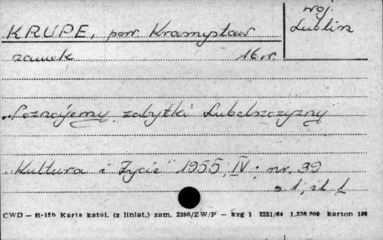 woj.
KRUPE, pow. Kramystaw
Lublin
zamek 16 w.
"Poznajemy zabytki Lubelszczyzny"
"Kultura i Życie" 1955, IV, nr. 39
s 1, il 1
CWD — H-15b Karta katal. (z liniat.) zam. 2396/ZW/F — kzg 1 2251/64 1.250.000 karton 180